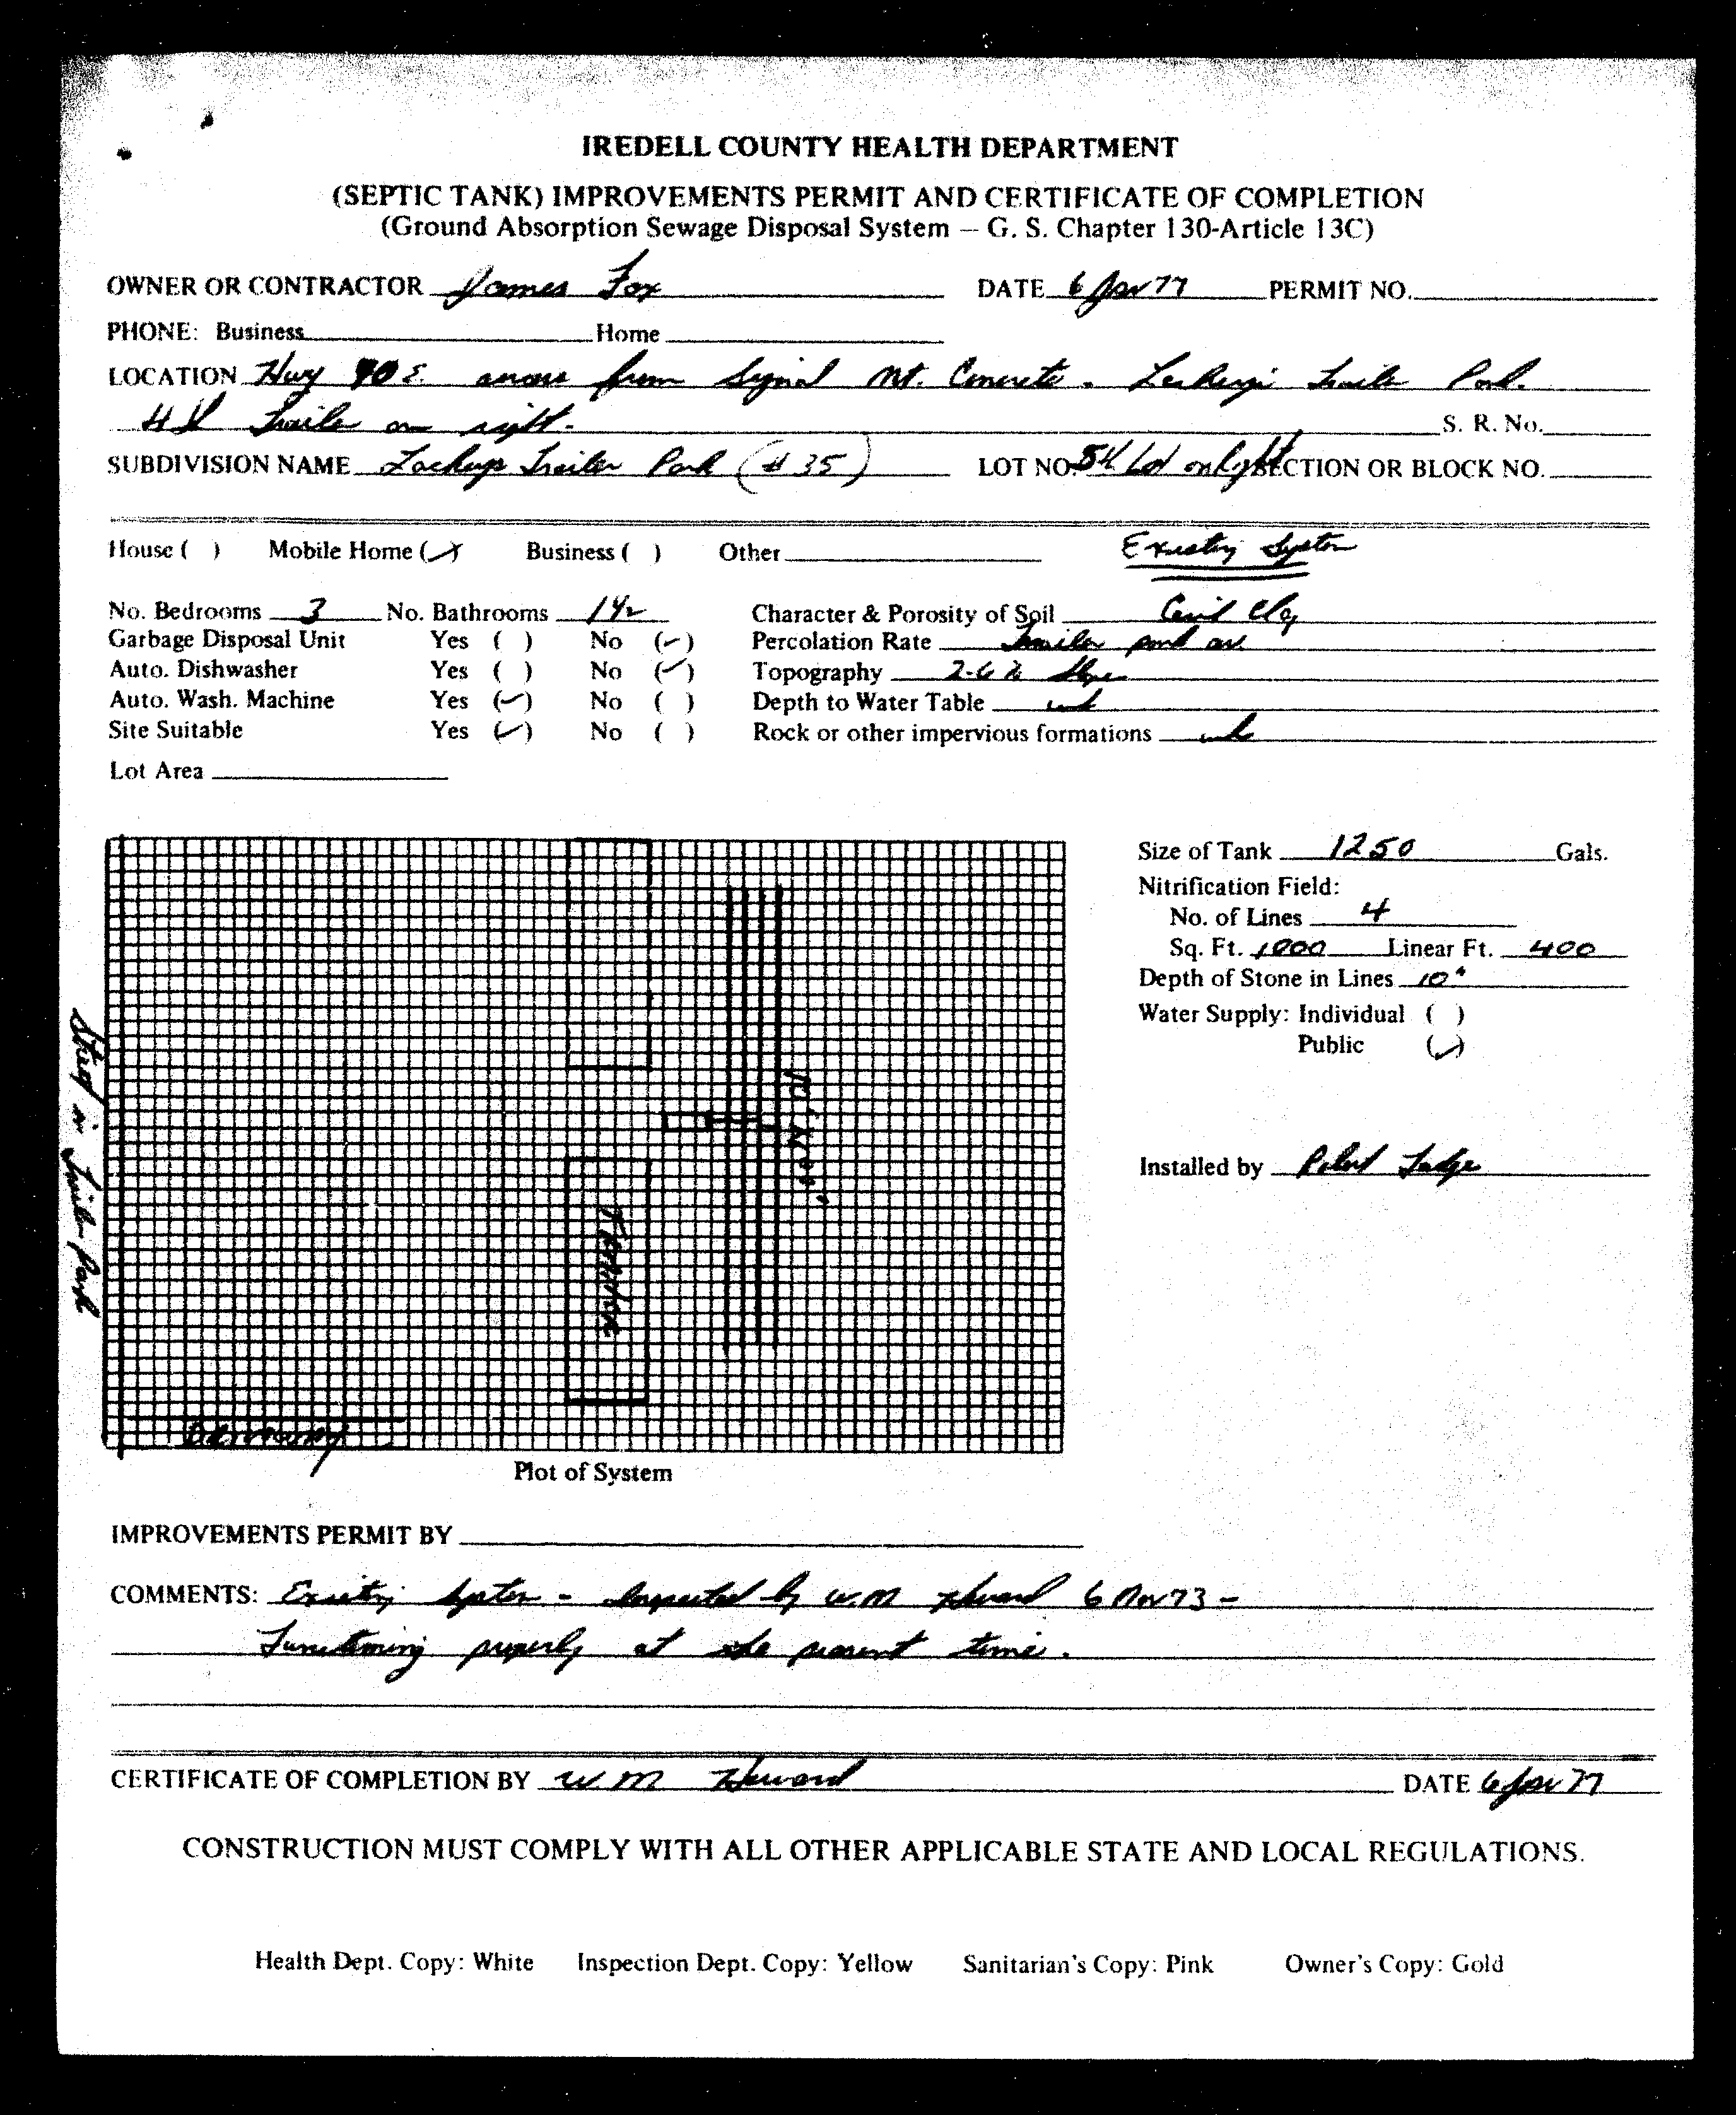 IREDELL COUNTY HEALTH DEPARTMENT
(SEPTIC TANK) IMPROVEMENTS PERMIT AND CERTIFICATE OF COMPLETION
(Ground Absorption Sewage Disposal System — G. S. Chapter 130-Article 13C)
OWNER OR CONTRACTOR James Fox DATE 6 Jan 77 PERMIT NO.
PHONE: Business Home
LOCATION Hwy 90 E. across from Signal Mt. Concrete. Trailer Park.
Trailer on right. S. R. No.
SUBDIVISION NAME Trailer Park (#35) LOT NO. Lot on right SECTION OR BLOCK NO.
House ( ) Mobile Home (✓) Business ( ) Other Existing System
No. Bedrooms 3 No. Bathrooms 1 1/2 Character & Porosity of Soil Cecil Clay
Garbage Disposal Unit Yes ( ) No (✓) Percolation Rate
Auto. Dishwasher Yes ( ) No (✓) Topography 2-6% Slope
Auto. Wash. Machine Yes (✓) No ( ) Depth to Water Table
Site Suitable Yes (✓) No ( ) Rock or other impervious formations
Lot Area
Size of Tank 1250 Gals.
Nitrification Field:
No. of Lines 4
Sq. Ft. 1000 Linear Ft. 400
Depth of Stone in Lines 10"
Water Supply: Individual ( )
Public (✓)
Installed by
Street in Trailer Park
Trailer
Driveway
Plot of System
IMPROVEMENTS PERMIT BY
COMMENTS: Existing System - Inspected by W.M Howard 6 Nov 73 -
Functioning properly at the present time.
CERTIFICATE OF COMPLETION BY W M Howard DATE 6 Jan 77
CONSTRUCTION MUST COMPLY WITH ALL OTHER APPLICABLE STATE AND LOCAL REGULATIONS.
Health Dept. Copy: White Inspection Dept. Copy: Yellow Sanitarian's Copy: Pink Owner's Copy: Gold